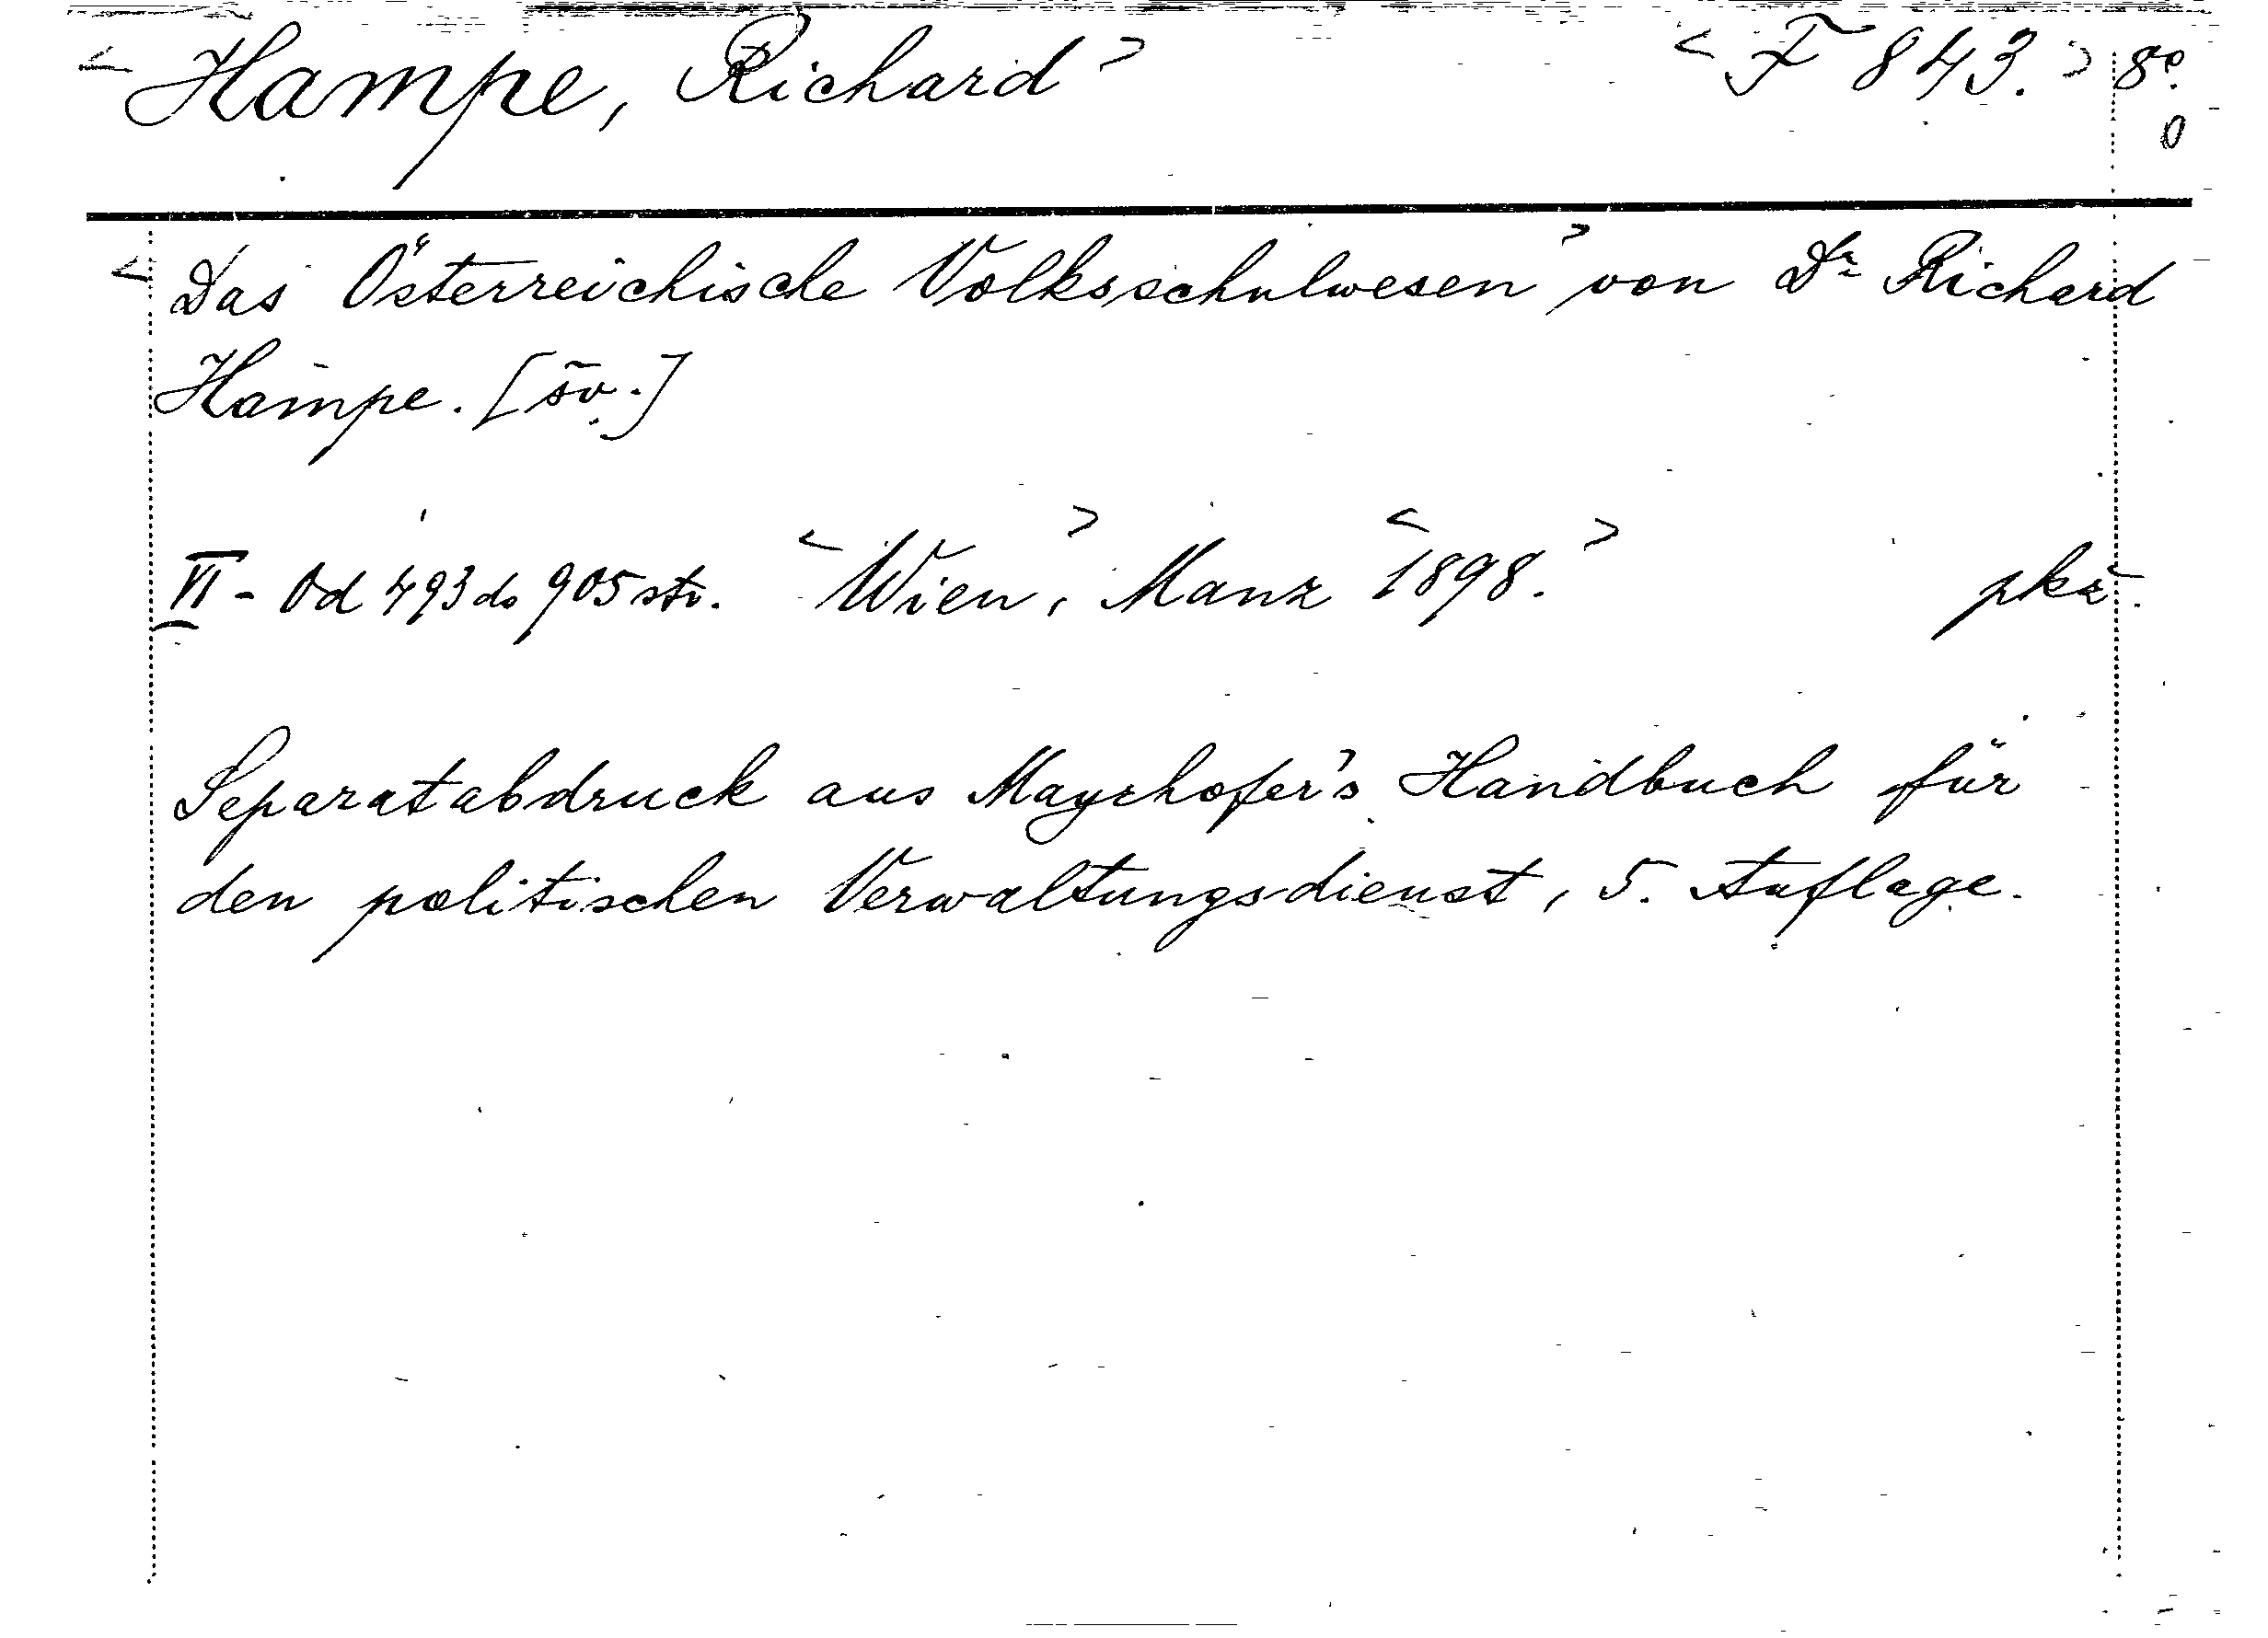 < Hampe, Richard > < F 843. > 8°.
0
< Das Österreichische Volksschulwesen > von Dr Richard
Hampe. [šv.]
VI - Od 493 do 905 str. < Wien, > Manz < 1898. > pkž.
Separatabdruck aus Mayrhofer's Handbuch für
den politischen Verwaltungsdienst, 5. Auflage.